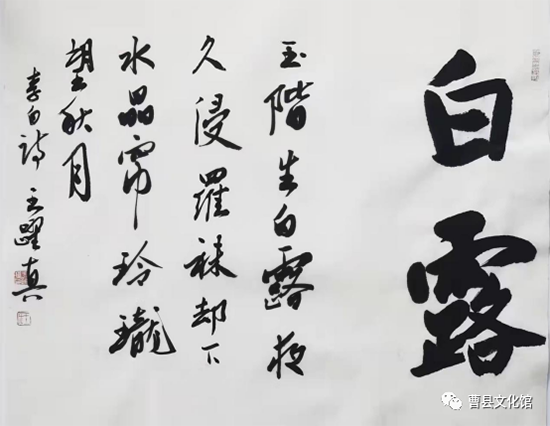 白露
玉階生白露夜
久浸羅袜却下
水晶帘玲瓏
望秋月
李白詩 王躍真
曹县文化馆